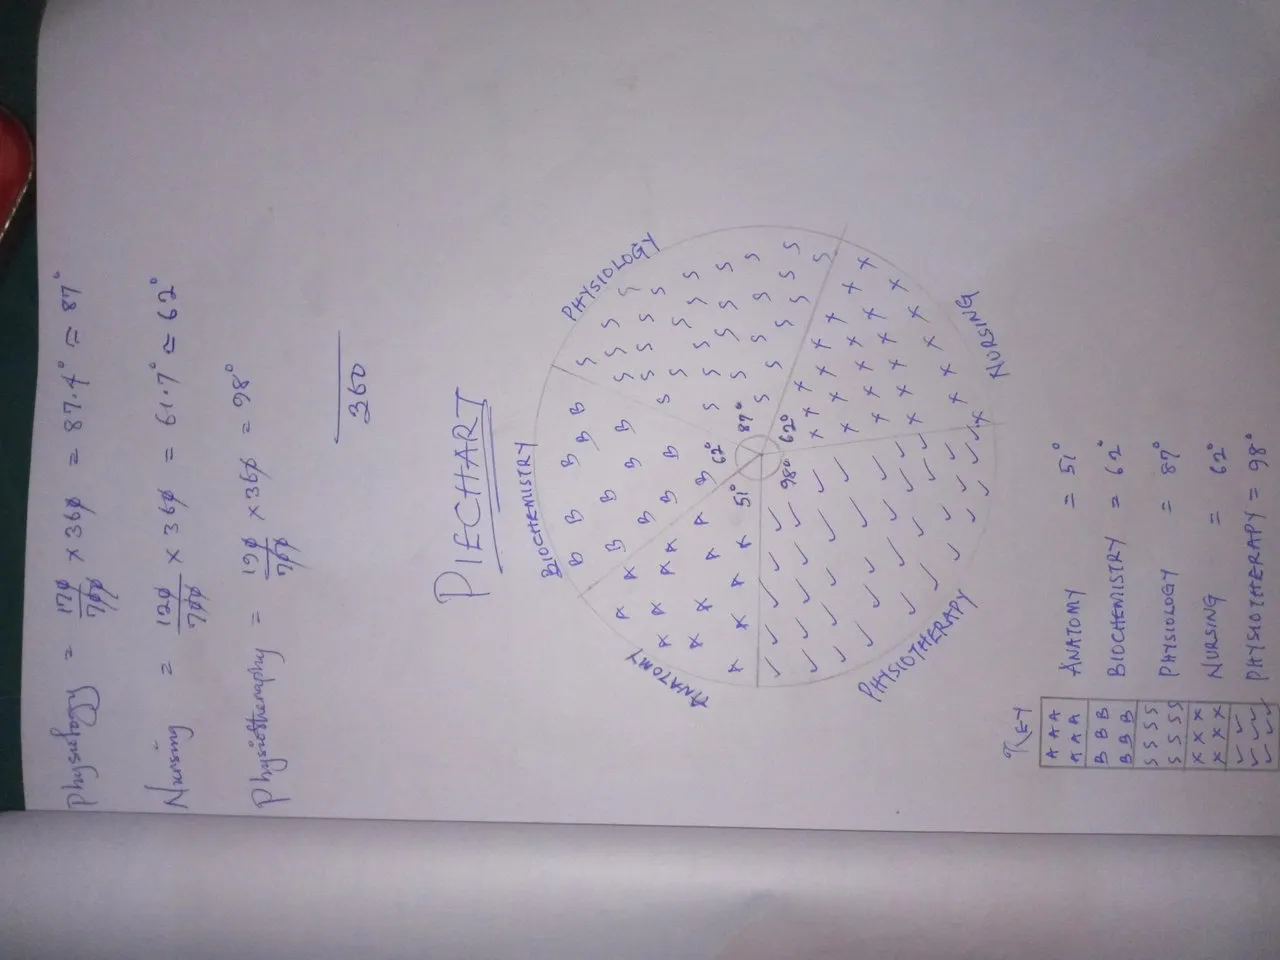 Physiology = 170/700 × 360 = 87.4° = 87°
Nursing = 120/700 × 360 = 61.7° = 62°
Physiotheraphy = 190/700 × 360 = 98°
360
PIECHART
ANATOMY
BIOCHEMISTRY
PHYSIOLOGY
NURSING
PHYSIOTHERAPY
51°
62°
87°
62°
98°
KEY
A A A
A A A
ANATOMY = 51°
B B B
B B B
BIOCHEMISTRY = 62°
S S S S
S S S S
PHYSIOLOGY = 87°
X X X
X X X
NURSING = 62°
PHYSIOTHERAPY = 98°